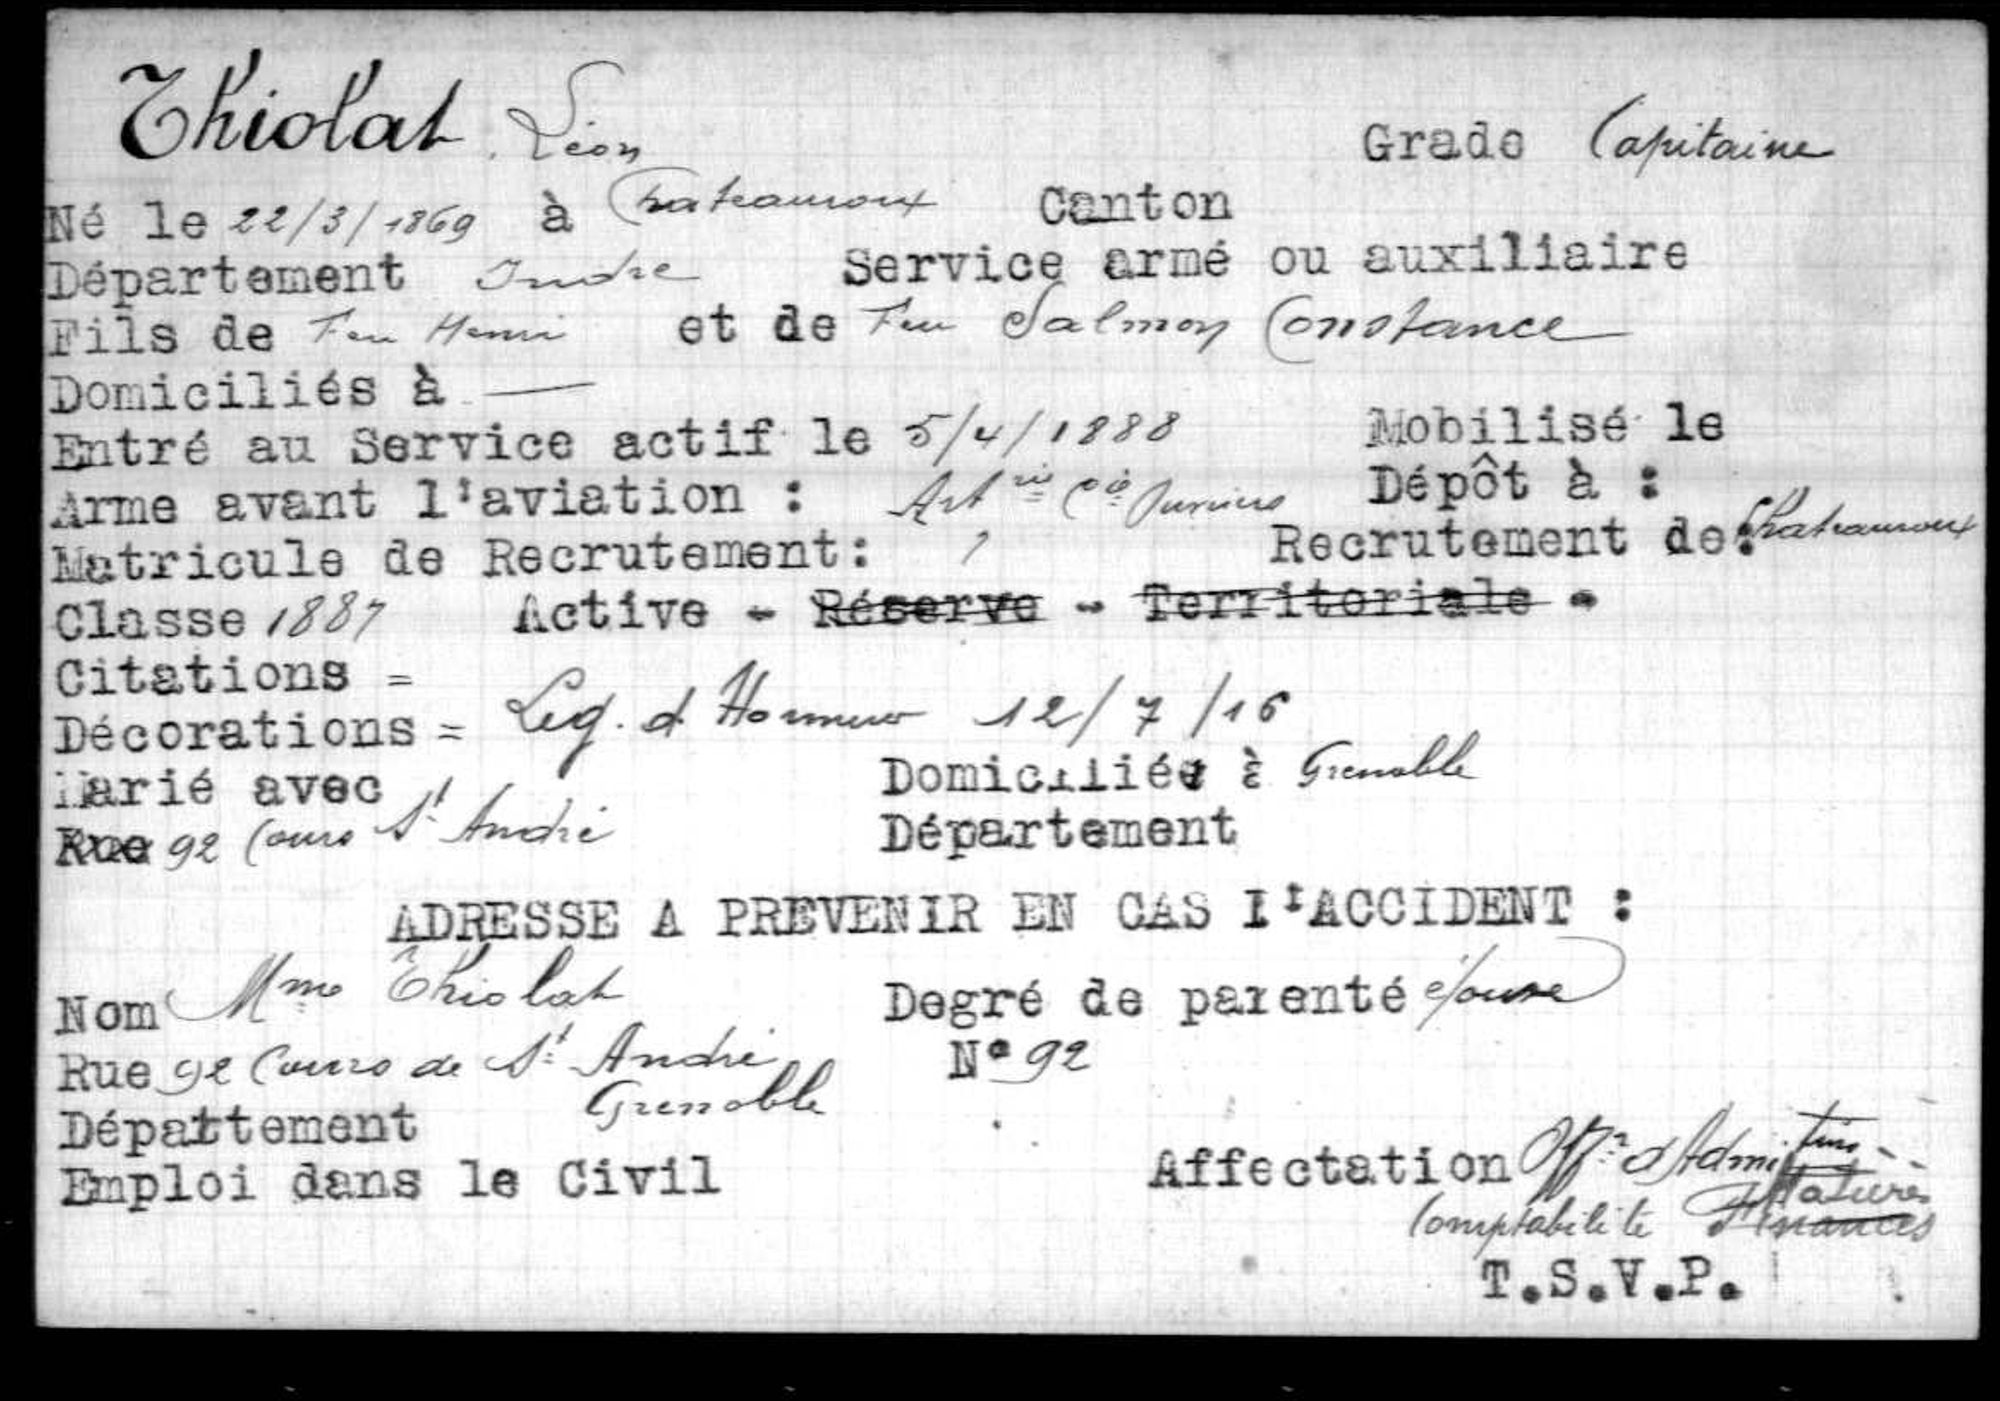 Thiolat Léon Grade Capitaine
Né le 22/3/1869 à Chateauroux Canton
Département Indre Service armé ou auxiliaire
Fils de Feu Henri et de Feu Salmon Constance
Domiciliés à —
Entré au Service actif le 5/4/1888 Mobilisé le
Arme avant l'aviation : Art rie Cie Ouvriers Dépôt à :
Matricule de Recrutement: ? Recrutement de: Chateauroux
Classe 1887 Active - Réserve - Territoriale -
Citations =
Décorations = Leg. d'Honneur 12/7/16
Marié avec Domiciliés à Grenoble
Rue 92 Cours St André Département
ADRESSE A PREVENIR EN CAS D'ACCIDENT :
Nom Mme Thiolat Degré de parenté épouse
Rue 92 Cours de St André N° 92
Grenoble
Dépattement
Emploi dans le Civil Affectation Offr d'Admi
Comptabilité Matières Finances
T.S.V.P.